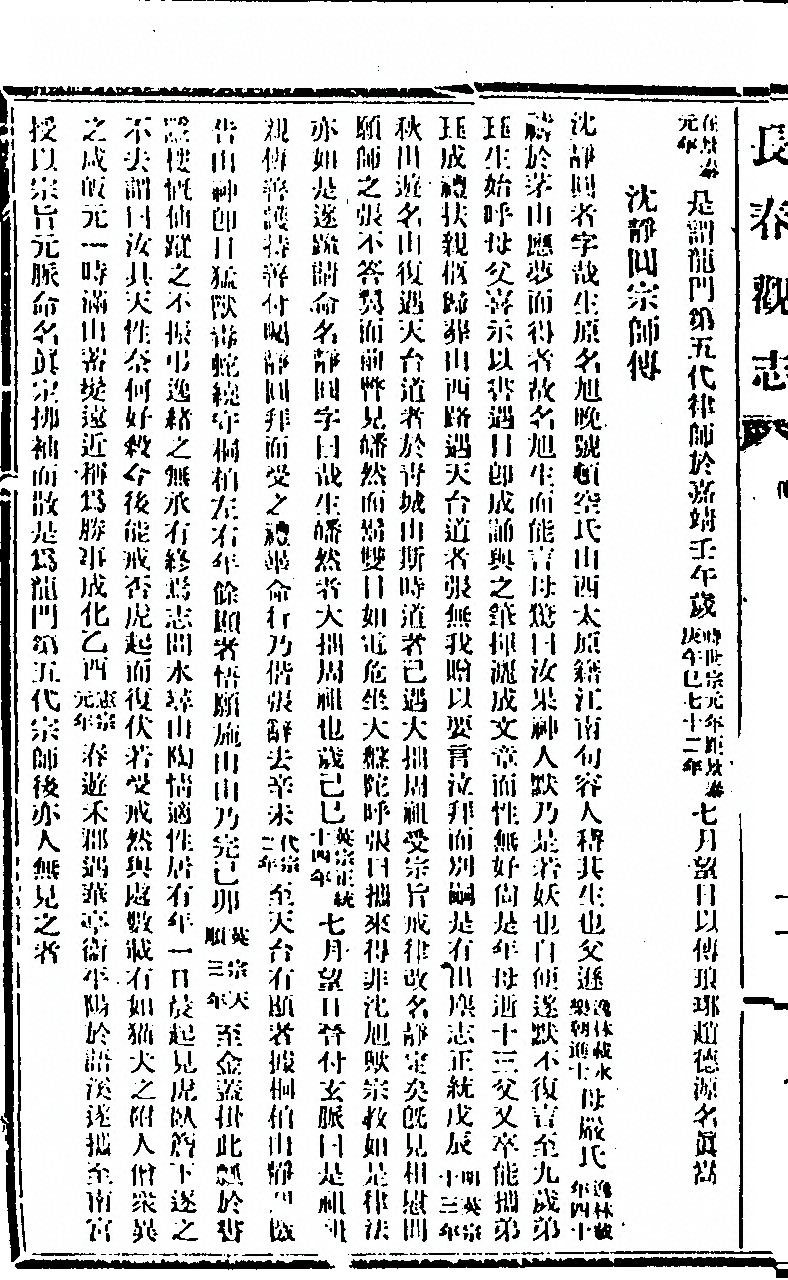 長春觀志
在景泰元年是謂龍門第五代律師於嘉靖壬午歲時世宗元年距景泰庚午已七十二年七月望日以傳琅琊趙德源名真嵩
沈靜圓宗師傳
沈靜圓者字哉生原名旭晚號頓空氏山西太原籍江南句容人稽其生也父遜逸林載永樂朝進士母嚴氏逸林載年四十
禱於茅山應夢而得者故名旭生而能言母驚曰汝果神人默乃是若妖也自便遂默不復言至九歲弟
珏生始呼母父喜示以書過目即成誦與之筆揮灑成文章而性無好尚是年母逝十三父又卒能攜弟
珏成禮扶親柩歸葬山西路遇天台道者張無我贈以要言泣拜而別嗣是有出塵志正統戊辰明英宗十三年
秋出遊名山復遇天台道者於青城山斯時道者已遇大拙周祖受宗旨戒律改名靜定矣既見相慰問
願師之張不答翼而前瞥見皤然而鬚雙目如電危坐大盤陀呼張曰攜來得非沈旭歟宗教如是律法
亦如是遂跪請命名靜圓字曰哉生皤然者大拙周祖也歲己巳英宗正統十四年七月望日晉付玄脈曰是祖祖
親傳善護持善付囑靜圓拜而受之禮畢命行乃偕張辭去辛未代宗二年至天台有願者據桐柏山靜圓既
告山神即日猛獸毒蛇繞守桐柏左右年餘願者悟願施山山乃完己卯英宗天順三年至金蓋掛此瓢於書
隱樓慨仙蹤之不振弔逸緒之無承有終焉志問水尋山陶情適性居有年一日晨起見虎臥簷下逐之
不去謂曰汝具天性奈何好殺今後能戒否虎起而復伏若受戒然與處數載有如猫犬之附人僧衆異
之成皈元一時滿山畜獒遠近稱為勝事成化乙酉憲宗元年春遊禾郡遇華亭衛平陽於語溪遂攜至南宮
授以宗旨元脈命名眞定拂袖而散是為龍門第五代宗師後亦人無見之者